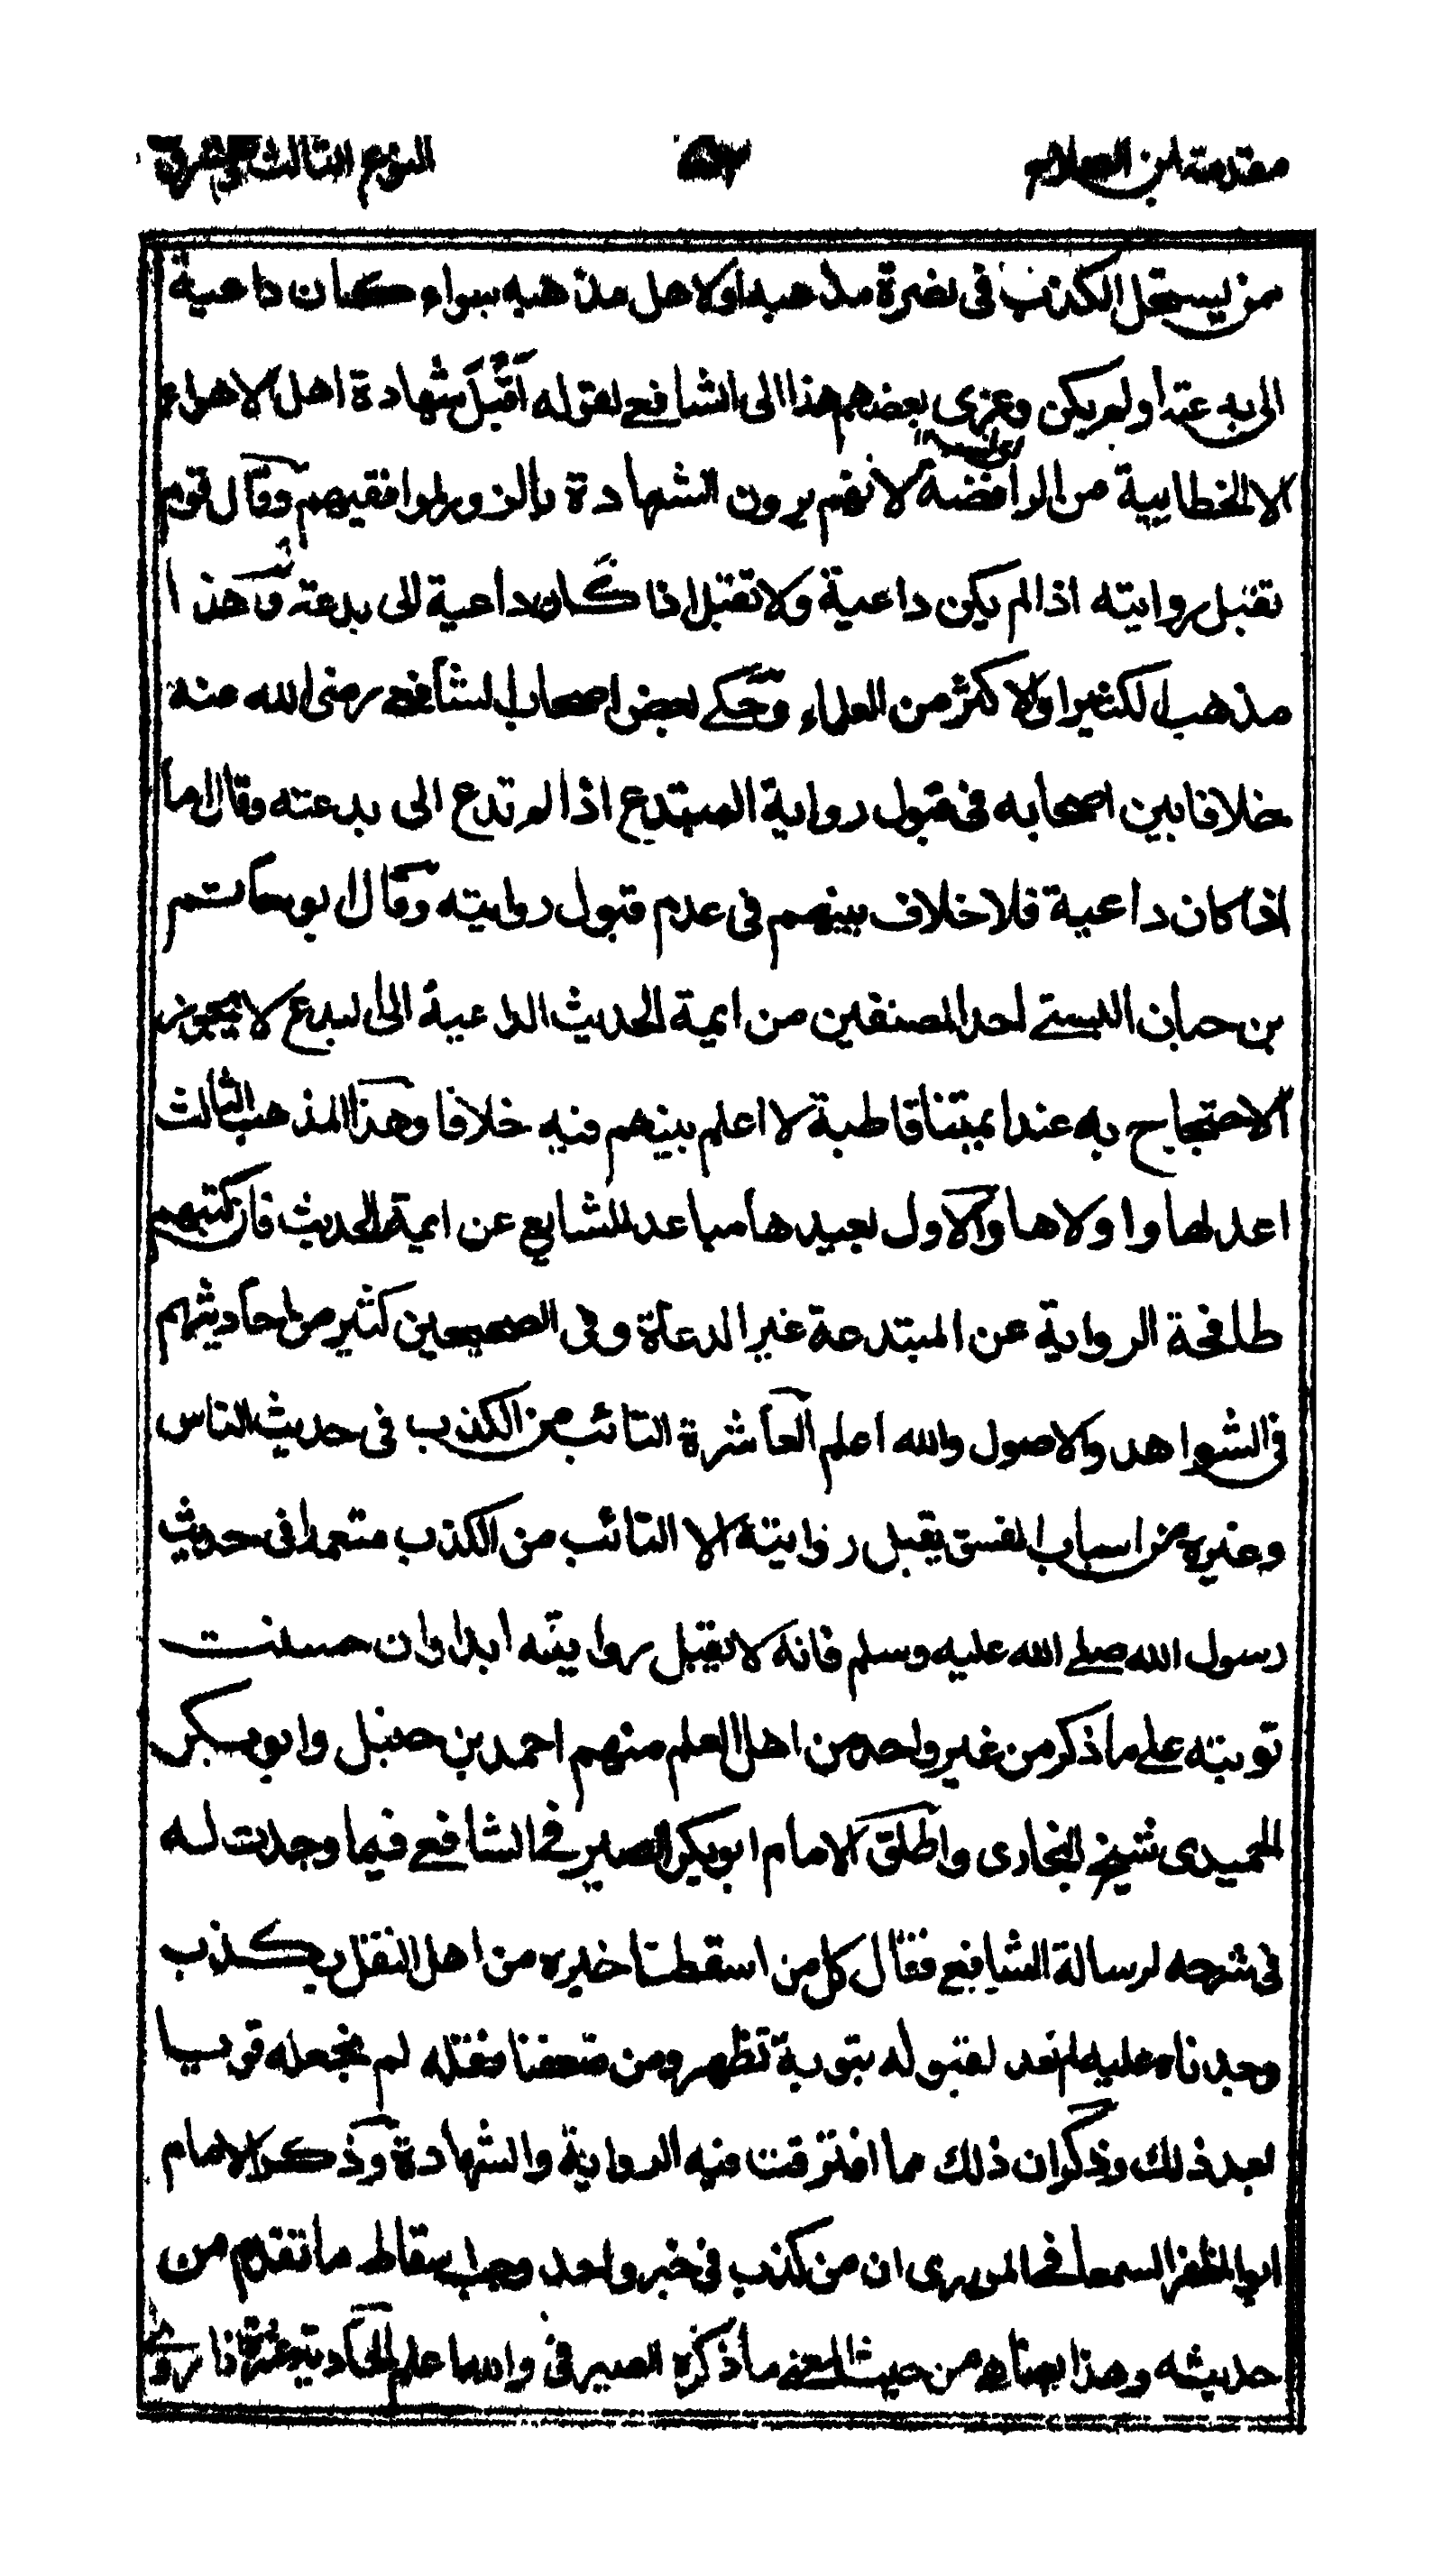 مقدمة ابن الصلاح ٥٢ النوع الثالث والعشرون
ممن يستحل الكذب فى نصرة مذهبه او لاهل مذهبه سواء كان داعية
الى بدعته او لم يكن وعزى بعضهم هذا الى الشافعے لقوله اقبل شهادة اهل الاهواء
الا الخطابية من الرافضة لانهم يرون الشهادة بالزور لموافقيهم وقال قوم
تقبل روايته اذا لم يكن داعية ولا تقبل اذا كان داعية الى بدعته وهذا
مذهب الكثير او الاكثر من العلماء وحكے بعض اصحاب الشافعے رضى الله عنه
خلافا بين اصحابه فى قبول رواية المبتدع اذا لم تدع الى بدعته وقال اما
اذا كان داعية فلا خلاف بينهم فى عدم قبول روايته وقال ابو حاتم
بن حبان البستے احد المصنفين من ايمة الحديث الداعية الى البدع لا يجوز
الاحتجاج به عند ايمتنا قاطبة لا اعلم بينهم فيه خلافا وهذا المذهب الثالث
اعدلها واولاها والاول بعيد مباعد للشايع عن ايمة الحديث فان كتبهم
طافحة الرواية عن المبتدعة غير الدعاة وفى الصحيحين كثير من احاديثهم
فى الشواهد والاصول والله اعلم العاشرة التائب من الكذب فى حديث الناس
وغيره من اسباب الفسق يقبل روايته الا التائب من الكذب متعمدا فى حديث
رسول الله صلے الله عليه وسلم فانه لا يقبل روايته ابدا وان حسنت
توبته علے ما ذكر من غير واحد من اهل العلم منهم احمد بن حنبل وابو بكر
الحميدى شيخ البخارى واطلق الامام ابو بكر الصيرفے الشافعے فيما وجدت له
فى شرحه لرسالة الشافعے فقال كل من اسقطنا خبره من اهل النقل بكذب
وجدناه عليه لم نعد لقبوله بتوبة تظهر ومن ضعفنا نقله لم نجعله قويا
بعد ذلك وذكر ان ذلك مما افترقت فيه الرواية والشهادة وذكر الامام
ابو المظفر السمعانے المروزى ان من كذب فى خبر واحد وجب اسقاط ما تقدم من
حديثه وهذا يضاهے من حيث المعنے ما ذكره الصيرفى والله اعلم الحادية عشرة اذا روى